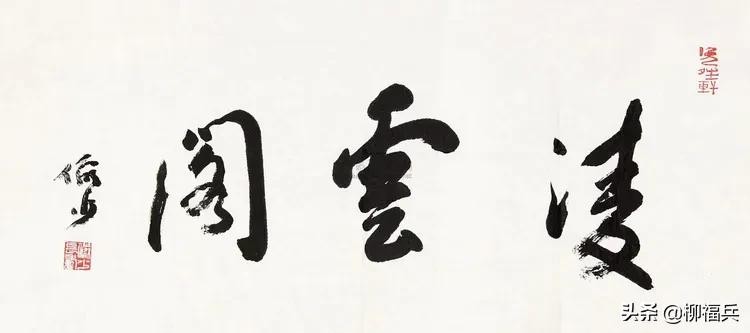 凌雲閣
头条 @柳福兵